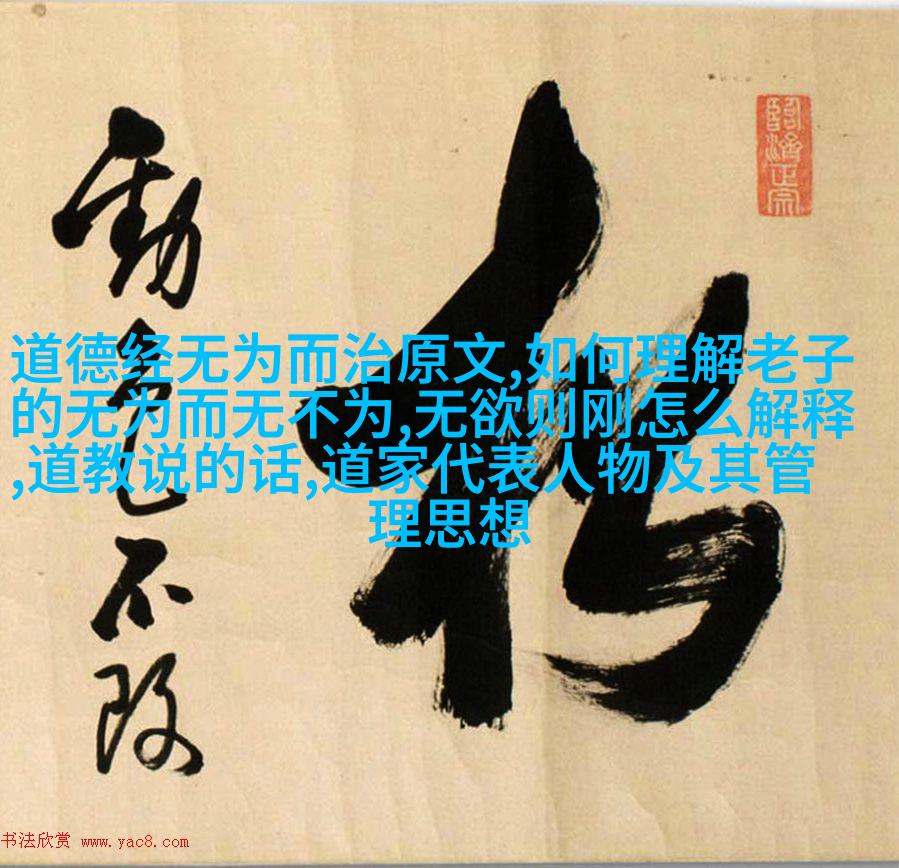 臨濟正宗
道德经无为而治原文,如何理解老子
的无为而无不为,无欲则刚怎么解释
,道教说的话,道家代表人物及其管
理思想
色不改
书法欣赏 www.yac8.com